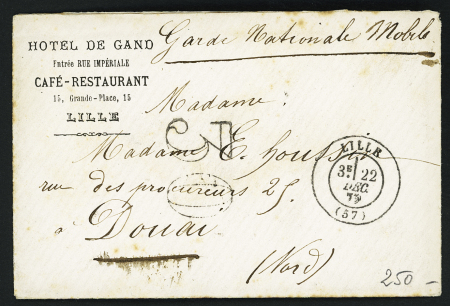 HOTEL DE GAND
Entrée RUE IMPÉRIALE
CAFÉ-RESTAURANT
15, Grande-Place, 15
LILLE
Garde Nationale Mobile
Madame
Madame E.
rue des procureurs 25.
à Douai
(Nord)
LILLE
3E 22
DEC.
(57)
250-